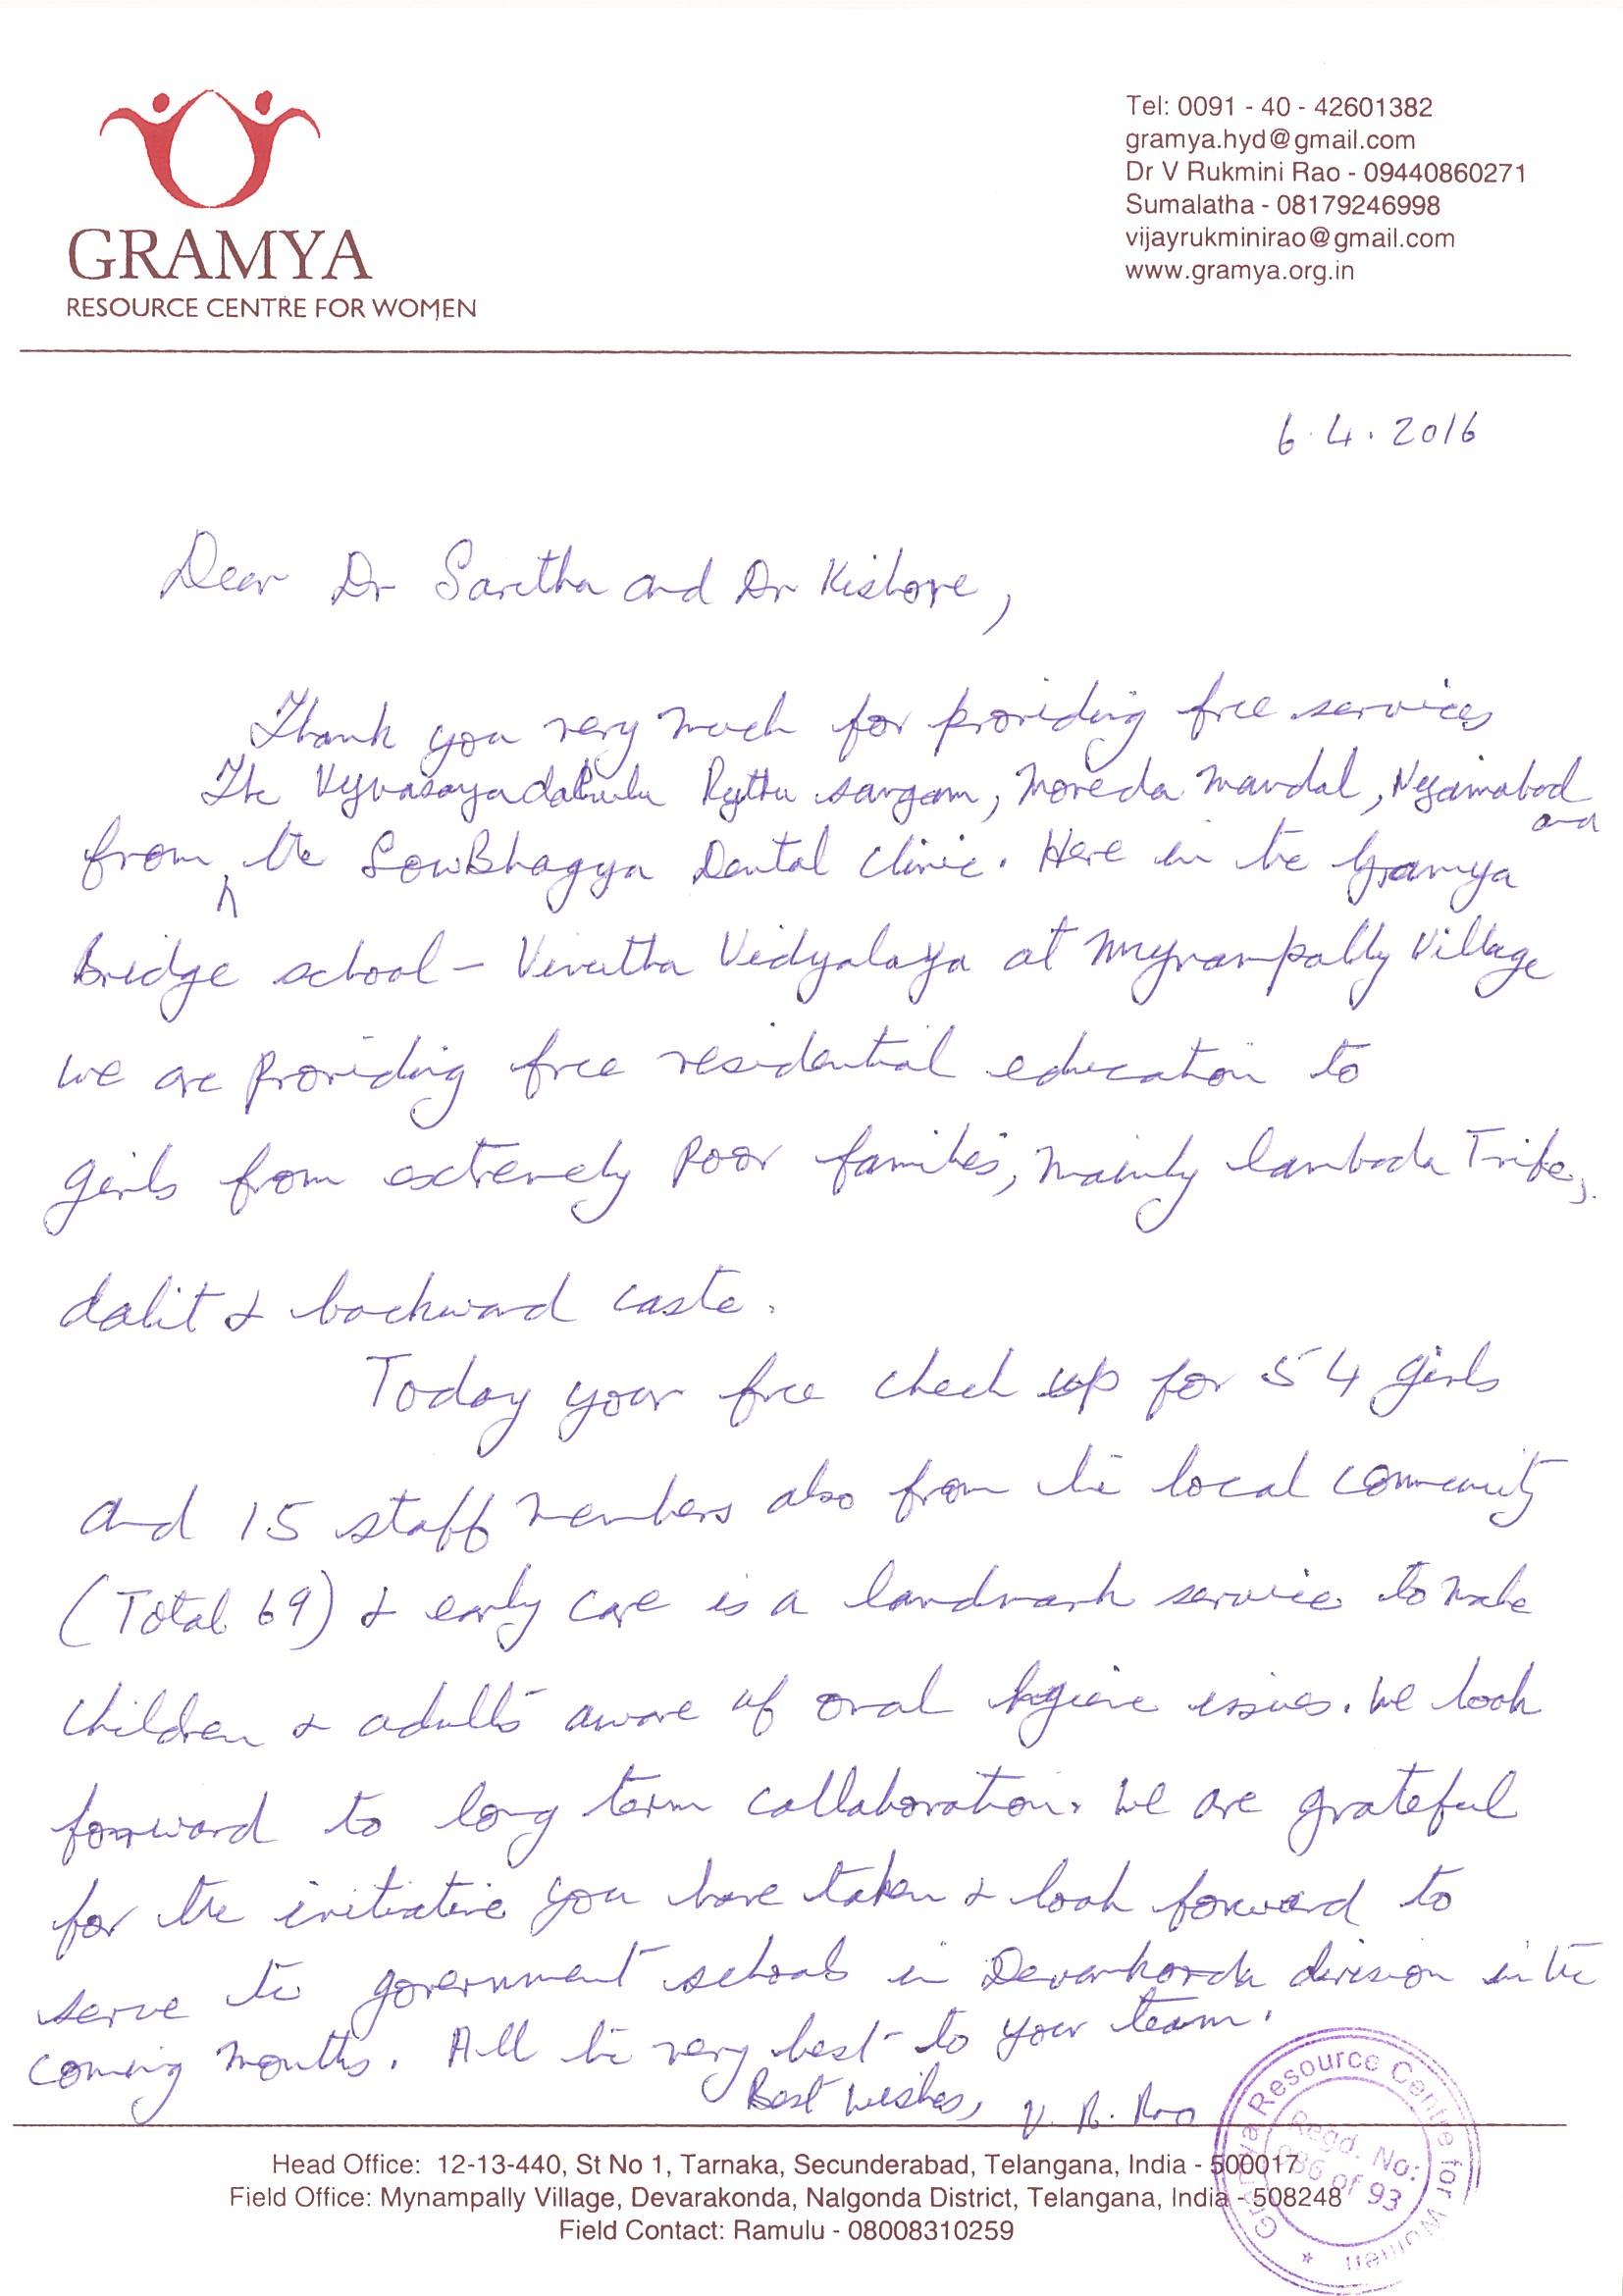 GRAMYA
RESOURCE CENTRE FOR WOMEN
Tel: 0091 - 40 - 42601382
gramya.hyd@gmail.com
Dr V Rukmini Rao - 09440860271
Sumalatha - 08179246998
vijayrukminirao@gmail.com
www.gramya.org.in
6.4.2016
Dear Dr Saritha and Dr Kishore,
Thank you very much for providing free services
The Rythu sangam, Mandal, and
from the SowBhagya Dental Clinic. Here in the Gramya
Bridge school - Vidyalaya at Mynampally Village
we are providing free residential education to
girls from extremely poor families, mainly lambada Tribe,
dalit & backward caste.
Today your free check up for 54 girls
and 15 staff members also from the local community
(Total 69) & early care is a landmark service to make
children & adults aware of oral hygiene issues. We look
forward to long term collaboration. We are grateful
for the initiative you have taken & look forward to
serve the government schools in Devarkonda division in the
coming months. All the very best to your team.
Best wishes, V. R. Rao
Gramya Resource Centre for Women
Regd. No:
986 of 93
Head Office: 12-13-440, St No 1, Tarnaka, Secunderabad, Telangana, India - 500017
Field Office: Mynampally Village, Devarakonda, Nalgonda District, Telangana, India - 508248
Field Contact: Ramulu - 08008310259